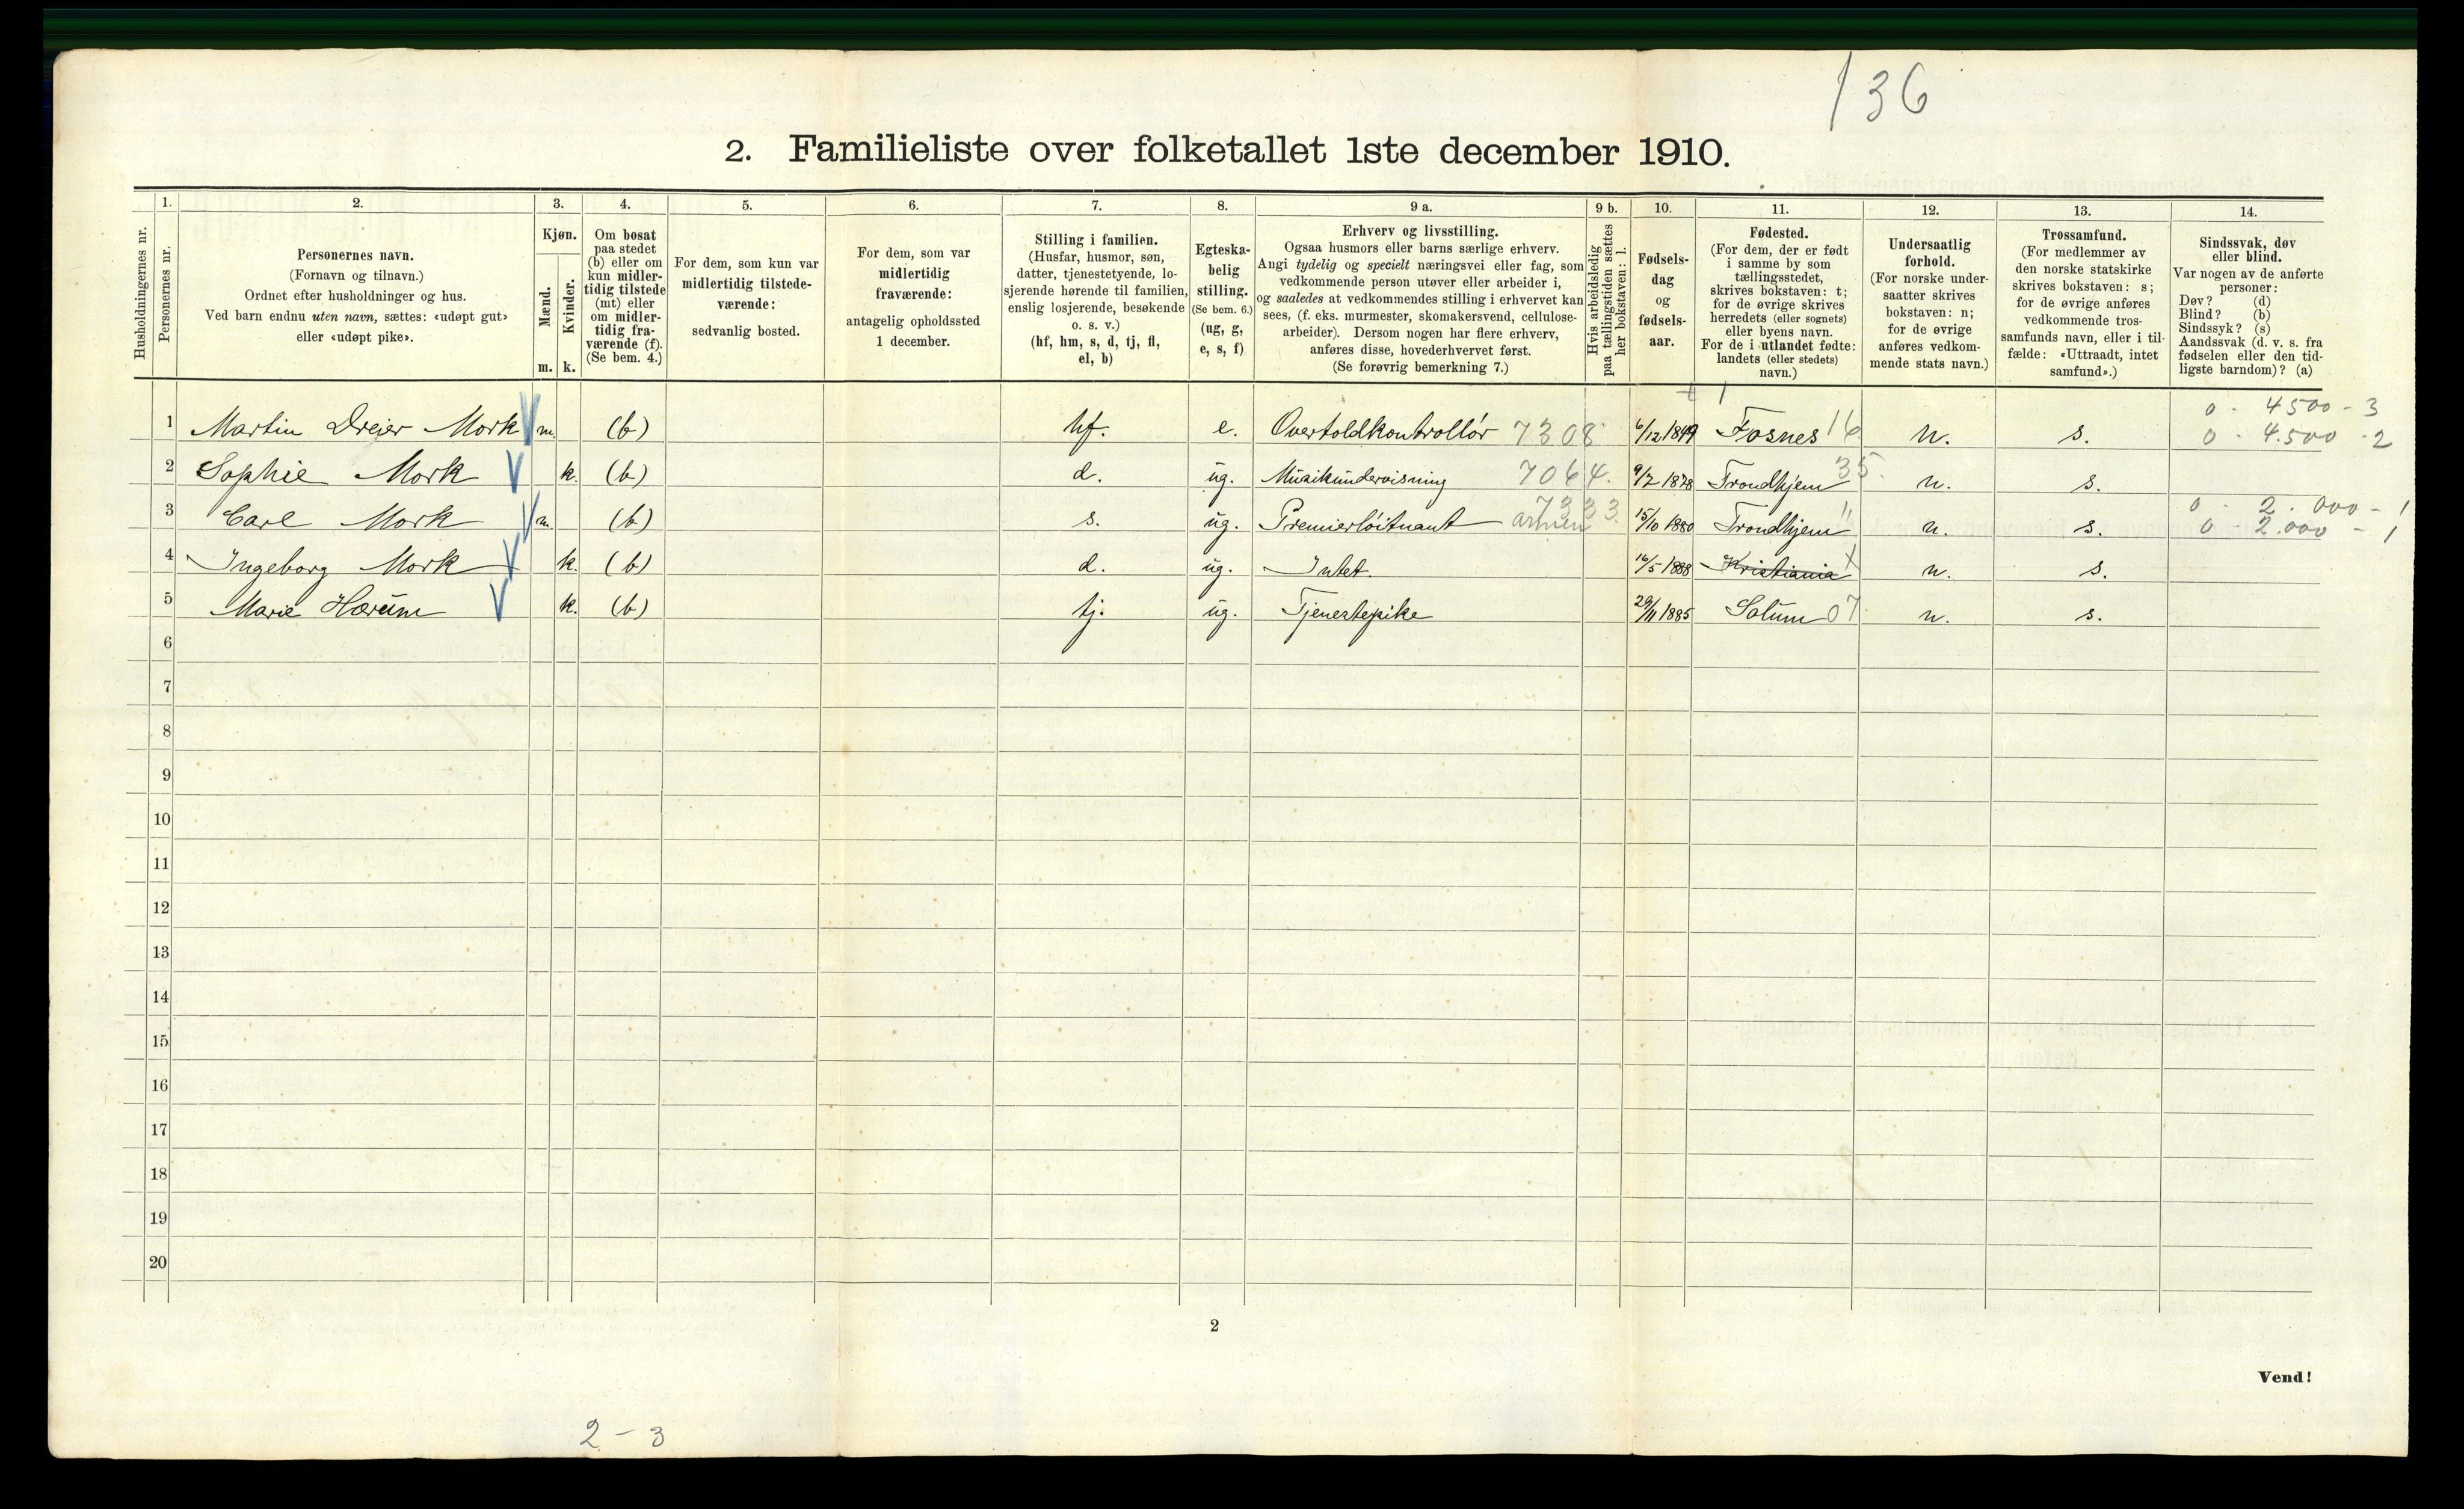 136
2. Familieliste over folketallet 1ste december 1910.
Husholdningernes nr.
1.
Personernes nr.
2.
Personernes navn.
(Fornavn og tilnavn.)
Ordnet efter husholdninger og hus.
Ved barn endnu uten navn, sættes: «udøpt gut»
eller «udøpt pike».
3.
Kjøn.
Mænd.
Kvinder.
m. k.
4.
Om bosat
paa stedet
(b) eller om
kun midler-
tidig tilstede
(mt) eller
om midler-
tidig fra-
værende (f).
(Se bem. 4.)
5.
For dem, som kun var
midlertidig tilstede-
værende:
sedvanlig bosted.
6.
For dem, som var
midlertidig
fraværende:
antagelig opholdssted
1 december.
7.
Stilling i familien.
(Husfar, husmor, søn,
datter, tjenestetyende, lo-
sjerende hørende til familien,
enslig losjerende, besøkende
o. s. v.)
(hf, hm, s, d, tj, fl,
el, b)
8.
Egteska-
belig
stilling.
(Se bem. 6.)
(ug, g,
e, s, f)
9 a.
Erhverv og livsstilling.
Ogsaa husmors eller barns særlige erhverv.
Angi tydelig og specielt næringsvei eller fag, som
vedkommende person utøver eller arbeider i,
og saaledes at vedkommendes stilling i erhvervet kan
sees, (f. eks. murmester, skomakersvend, cellulose-
arbeider). Dersom nogen har flere erhverv,
anføres disse, hovederhvervet først.
(Se forøvrig bemerkning 7.)
9 b.
Hvis arbeidsledig
paa tællingstiden sættes
her bokstaven: l.
10.
Fødsels-
dag
og
fødsels-
aar.
11.
Fødested.
(For dem, der er født
i samme by som
tællingsstedet,
skrives bokstaven: t;
for de øvrige skrives
herredets (eller sognets)
eller byens navn.
For de i utlandet fødte:
landets (eller stedets)
navn.)
12.
Undersaatlig
forhold.
(For norske under-
saatter skrives
bokstaven: n;
for de øvrige
anføres vedkom-
mende stats navn.)
13.
Trossamfund.
(For medlemmer av
den norske statskirke
skrives bokstaven: s;
for de øvrige anføres
vedkommende tros-
samfunds navn, eller i til-
fælde: «Uttraadt, intet
samfund».)
14.
Sindssvak, døv
eller blind.
Var nogen av de anførte
personer:
Døv? (d)
Blind? (b)
Sindssyk? (s)
Aandssvak (d. v. s. fra
fødselen eller den tid-
ligste barndom)? (a)
0 - 4500 - 3
1 Martin Dreier Mork m. (b) hf. e. Overtoldkontrollør 7308 6/12 1849 Fosnes 16 n. s. 0 - 4.500 - 2
2 Sophie Mork k. (b) d. ug. Musikundervisning 7064. 9/2 1878 Trondhjem 35. n. s.
7333 0 - 2.000 - 1
3 Carl Mork m. (b) s. ug. Premierløitnant armeen 15/10 1880 Trondhjem " n. s. 0 - 2.000 - 1
4 Ingeborg Mork k. (b) d. ug. Intet. 16/5 1888 Kristiania n. s.
5 Marie Hærum k. (b) tj. ug. Tjenestepike 29/11 1885 Solum 07 n. s.
6
7
8
9
10
11
12
13
14
15
16
17
18
19
20
2
Vend!
2 - 3